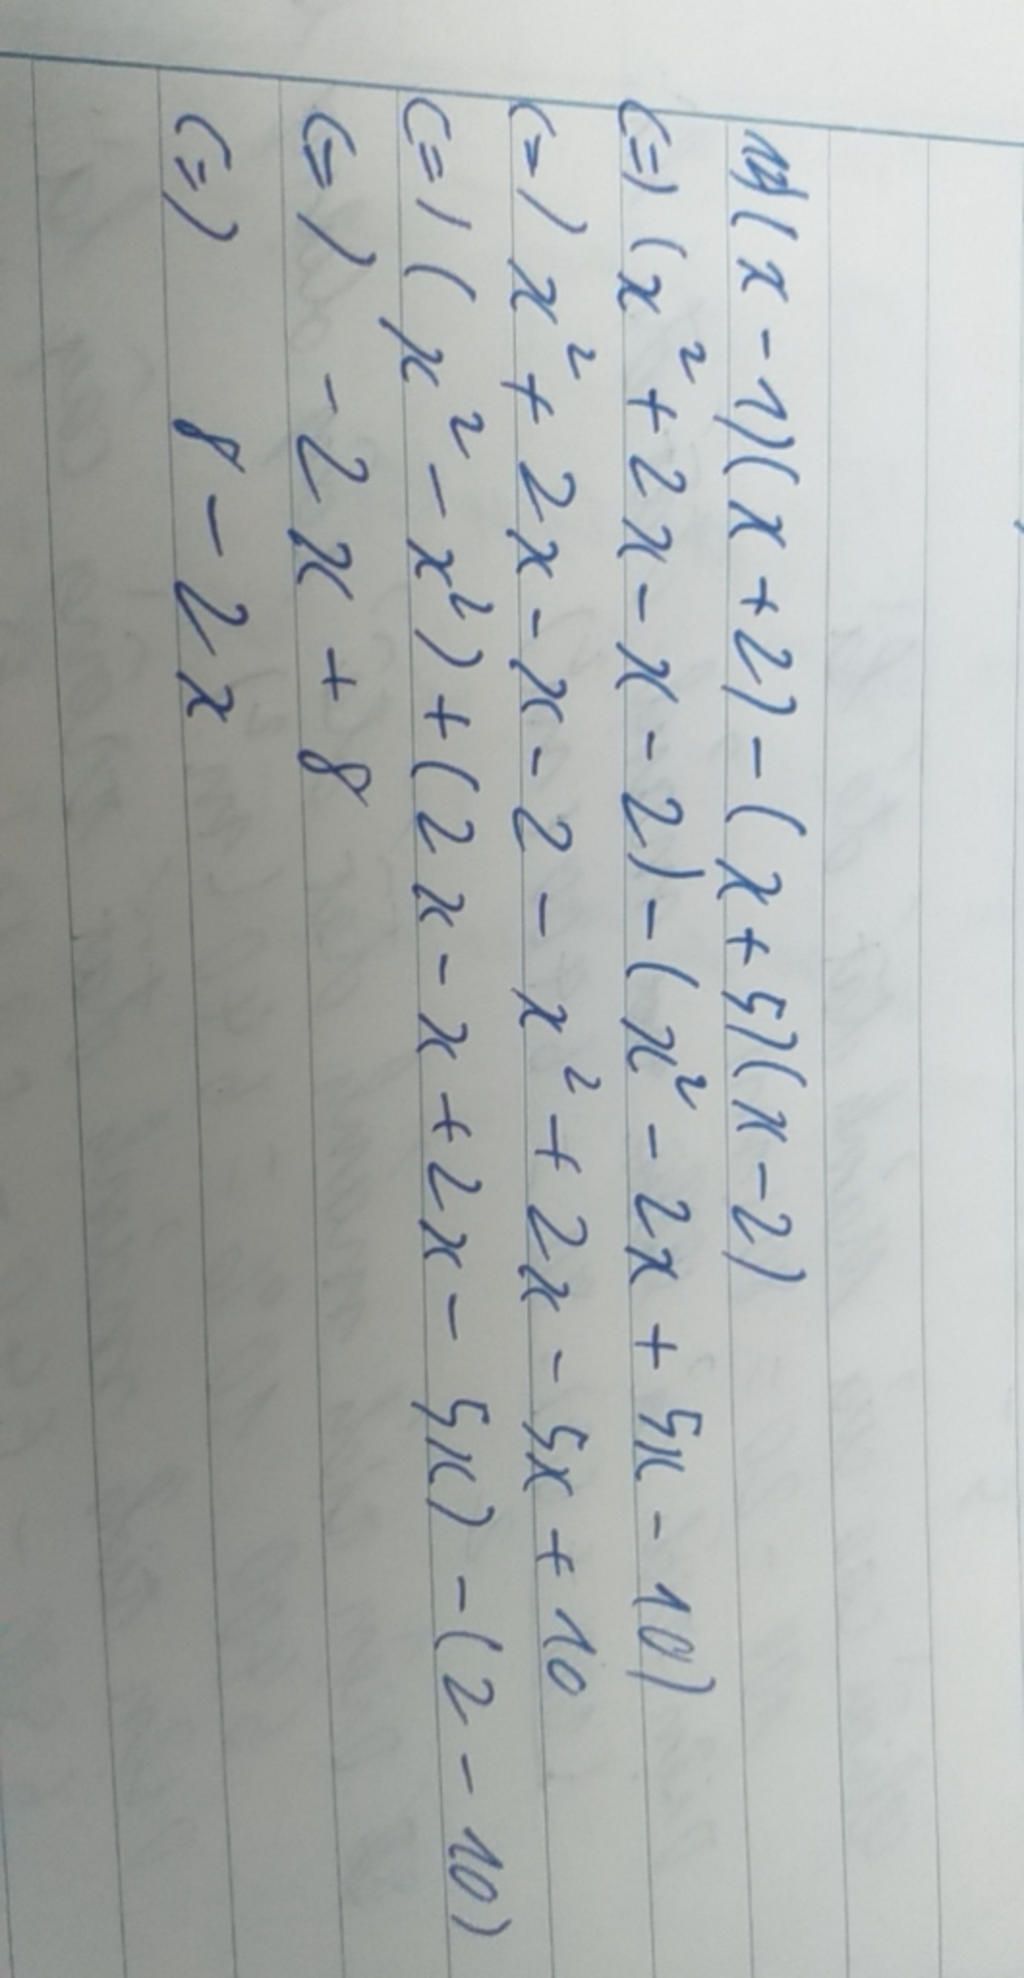 (x-1)(x+2)-(x+5)(x-2)
(=) (x²+2x-x-2)-(x²-2x+5x-10)
(=) x²+2x-x-2-x²+2x-5x+10
(=) (x²-x²)+(2x-x+2x-5x)-(2-10)
(=) -2x+8
(=) 8-2x